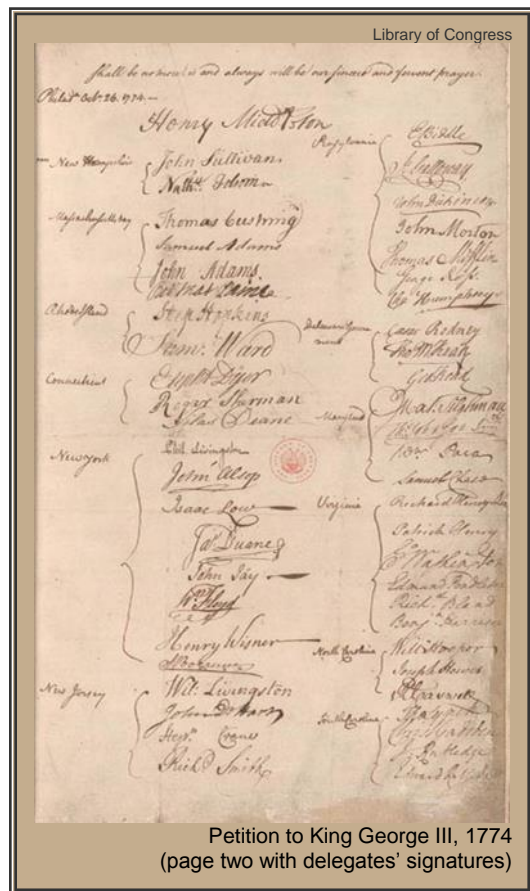 Library of Congress
shall be as most is and always will be our sincere and fervent prayer.
Philadª Octr. 26. 1774.
Henry Middleton
New Hampshire
John Sullivan
Nathl. Folsom
Massachusetts bay
Thomas Cushing
Samuel Adams
John Adams.
Rhode Island
Step Hopkins
Saml. Ward
Connecticut
Elipht Dyer
Roger Sherman
Silas Deane
New York
Phil. Livingston
John Alsop
Isaac Low
Jas. Duane
John Jay
Wm. Floyd
Henry Wisner
New Jersey
Wil: Livingston
John D Hart
Stepn. Crane
Richd. Smith
Pensylvania
E Biddle
J. Galloway
John Dickinson
John Morton
Thomas Mifflin
George Ross
Chs Humphreys
Delaware Government
Caesar Rodney
Tho M:Kean
Geo Read
Maryland
Mat. Tilghman
Wm. Paca
Samuel Chase
Virginia
Richard Henry Lee
Patrick Henry
Go Washington
Edmund Pendleton
Richd. Bland
Benjn Harrison
North Carolina
Will Hooper
Joseph Hewes
R Caswell
South Carolina
J Rutledge
Edward Rutledge
Petition to King George III, 1774
(page two with delegates’ signatures)